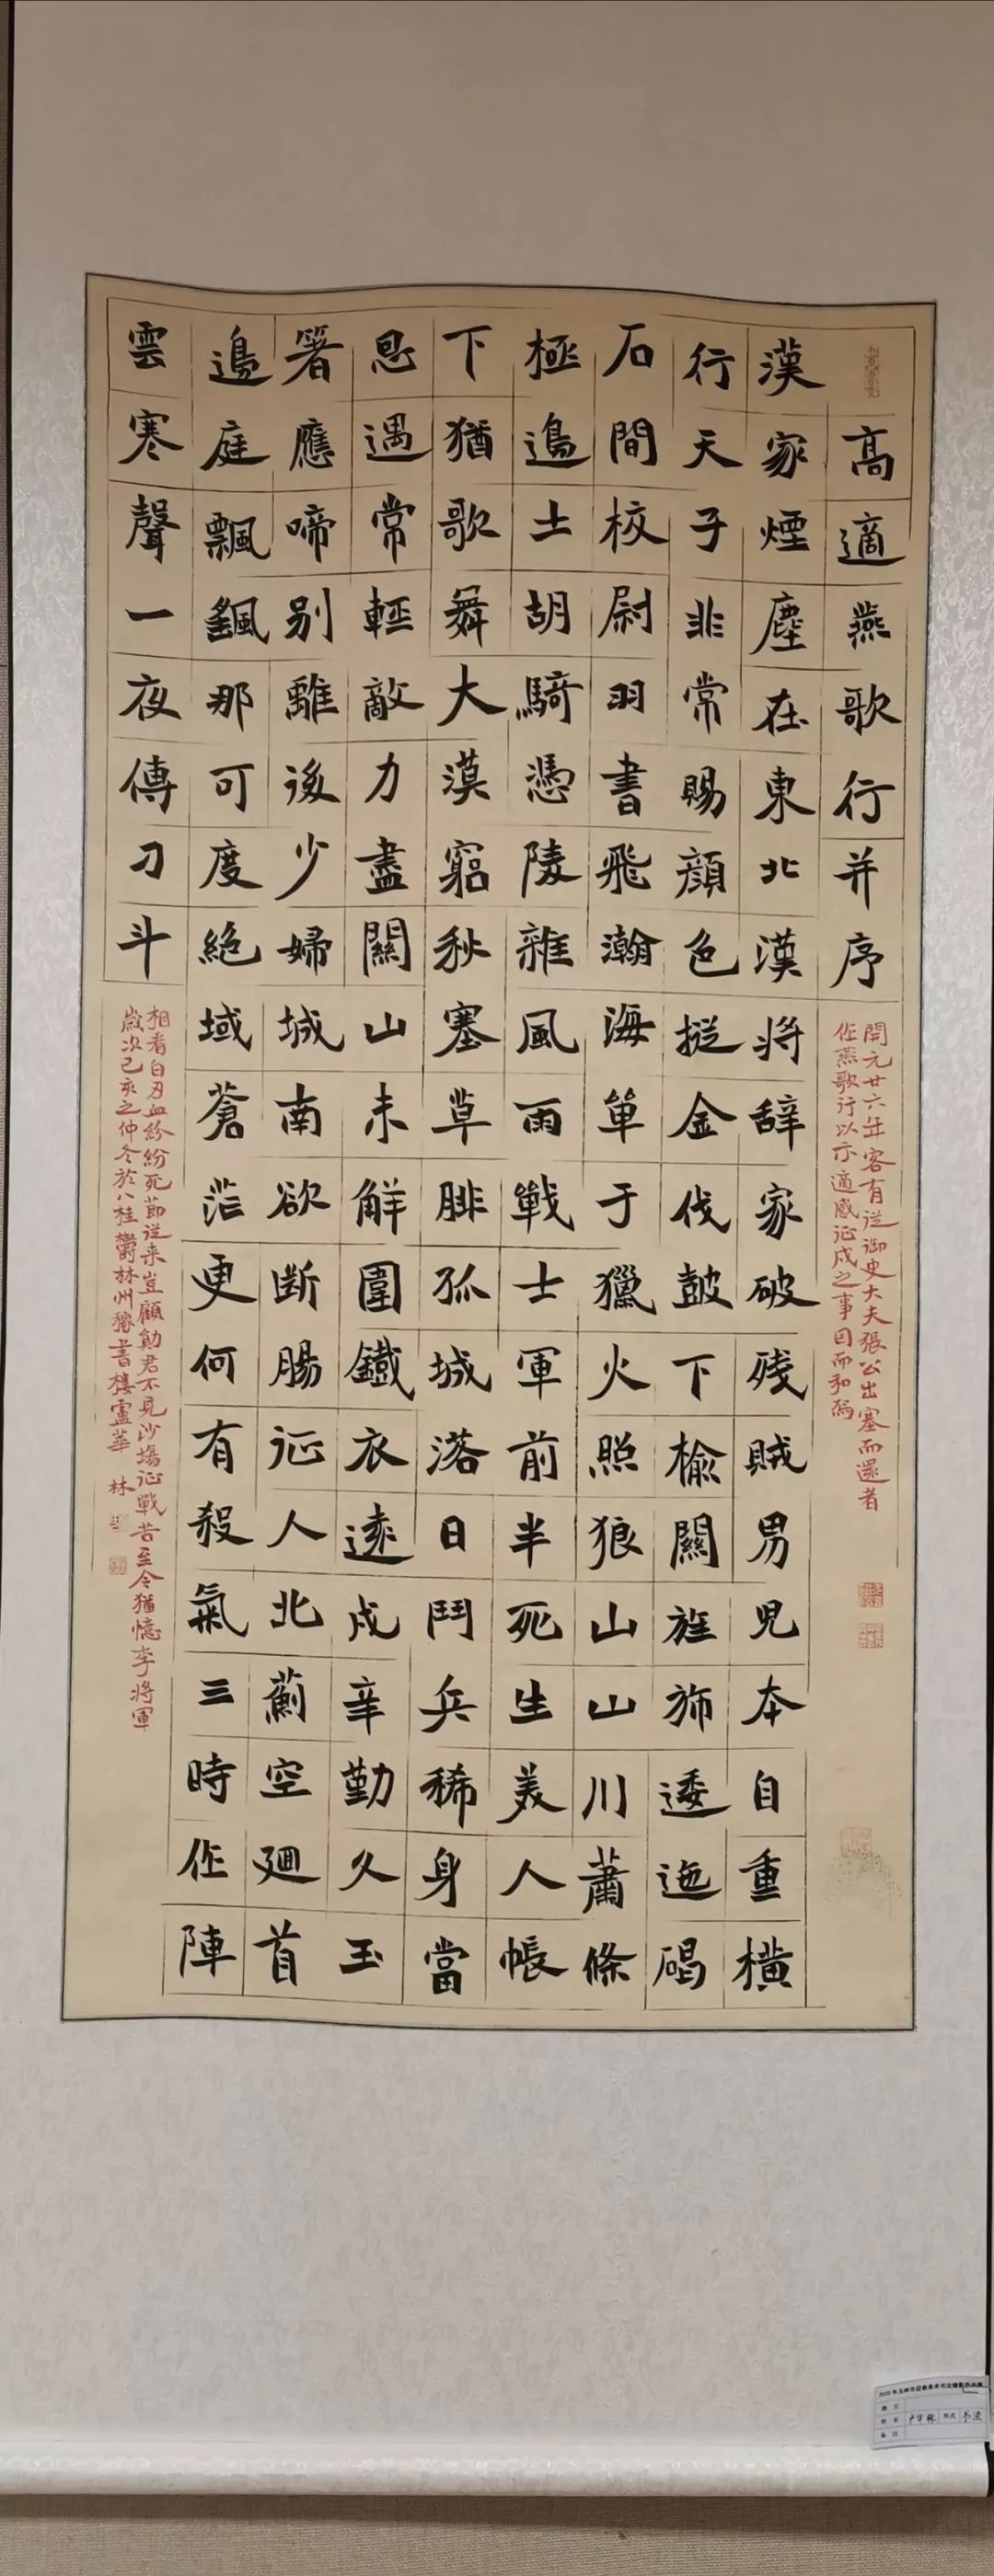 高適燕歌行并序
開元廿六年客有從御史大夫張公出塞而還者
作燕歌行以示適感征戍之事因而和焉
漢家煙塵在東北漢將辞家破殘賊男兒本自重橫
行天子非常賜顏色摐金伐鼓下榆關旌旆逶迤碣
石間校尉羽書飛瀚海單于獵火照狼山山川蕭條
極邊土胡騎憑陵雜風雨戰士軍前半死生美人帳
下猶歌舞大漠窮秋塞草腓孤城落日鬥兵稀身當
恩遇常輕敵力盡關山未解圍鐵衣遠戍辛勤久玉
箸應啼别離後少婦城南欲断腸征人北薊空廻首
邊庭飄颻那可度絕域蒼茫更何有殺氣三時作陣
雲寒聲一夜傳刁斗
相看白刃血紛紛死節從来豈顧勛君不見沙場征戰苦至今猶憶李將軍
歲次己亥之仲冬於八桂鬱林州書樓盧華林
2020年玉林市迎春美术书法摄影作品展
姓名 卢华林 形式 书法
备注